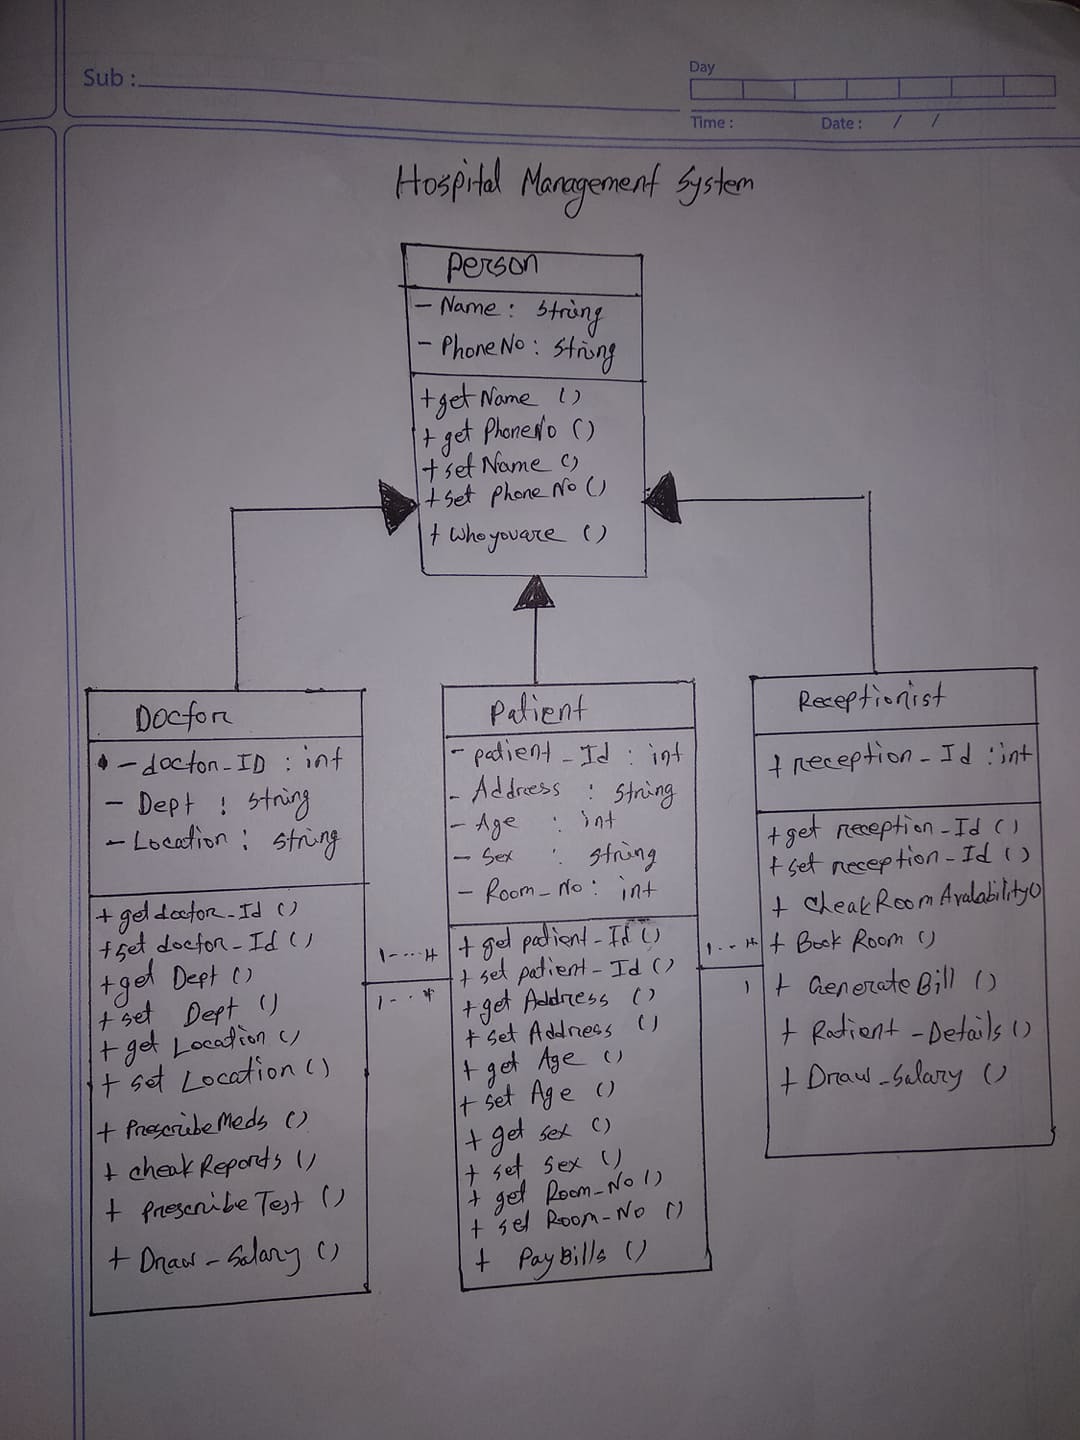 Sub :
Day
Time :
Date : / /
Hospital Management System
Person
- Name : String
- PhoneNo : String
+ get Name ()
+ get PhoneNo ()
+ set Name ()
+ set PhoneNo ()
+ Whoyouare ()
Doctor
- doctor_ID : int
- Dept : String
- Location : String
+ get doctor_Id ()
+ set doctor_Id ()
+ get Dept ()
+ set Dept ()
+ get Location ()
+ set Location ()
+ PrescribeMeds ()
+ cheakReports ()
+ PrescribeTest ()
+ Draw_Salary ()
1-...*
1-..*
Patient
- patient_Id : int
- Address : String
- Age : int
- Sex : String
- Room_No : int
+ get patient_Id ()
+ set patient_Id ()
+ get Address ()
+ set Address ()
+ get Age ()
+ set Age ()
+ get sex ()
+ set sex ()
+ get Room_No ()
+ set Room_No ()
+ PayBills ()
1...*
1
Receptionist
+ reception_Id : int
+ get reception_Id ()
+ set reception_Id ()
+ CheakRoomAvalability()
+ Book Room ()
+ GenerateBill ()
+ Patient_Details ()
+ Draw_Salary ()